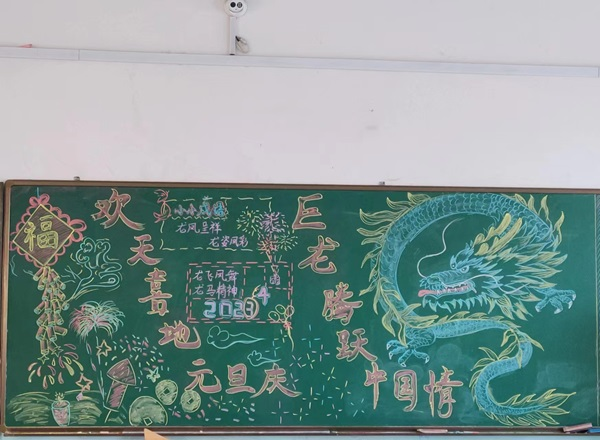 福
欢天喜地
元旦庆
龙风呈祥
龙姿风彩
龙飞凤舞
龙马精神
2023
4
巨龙腾跃
中国情